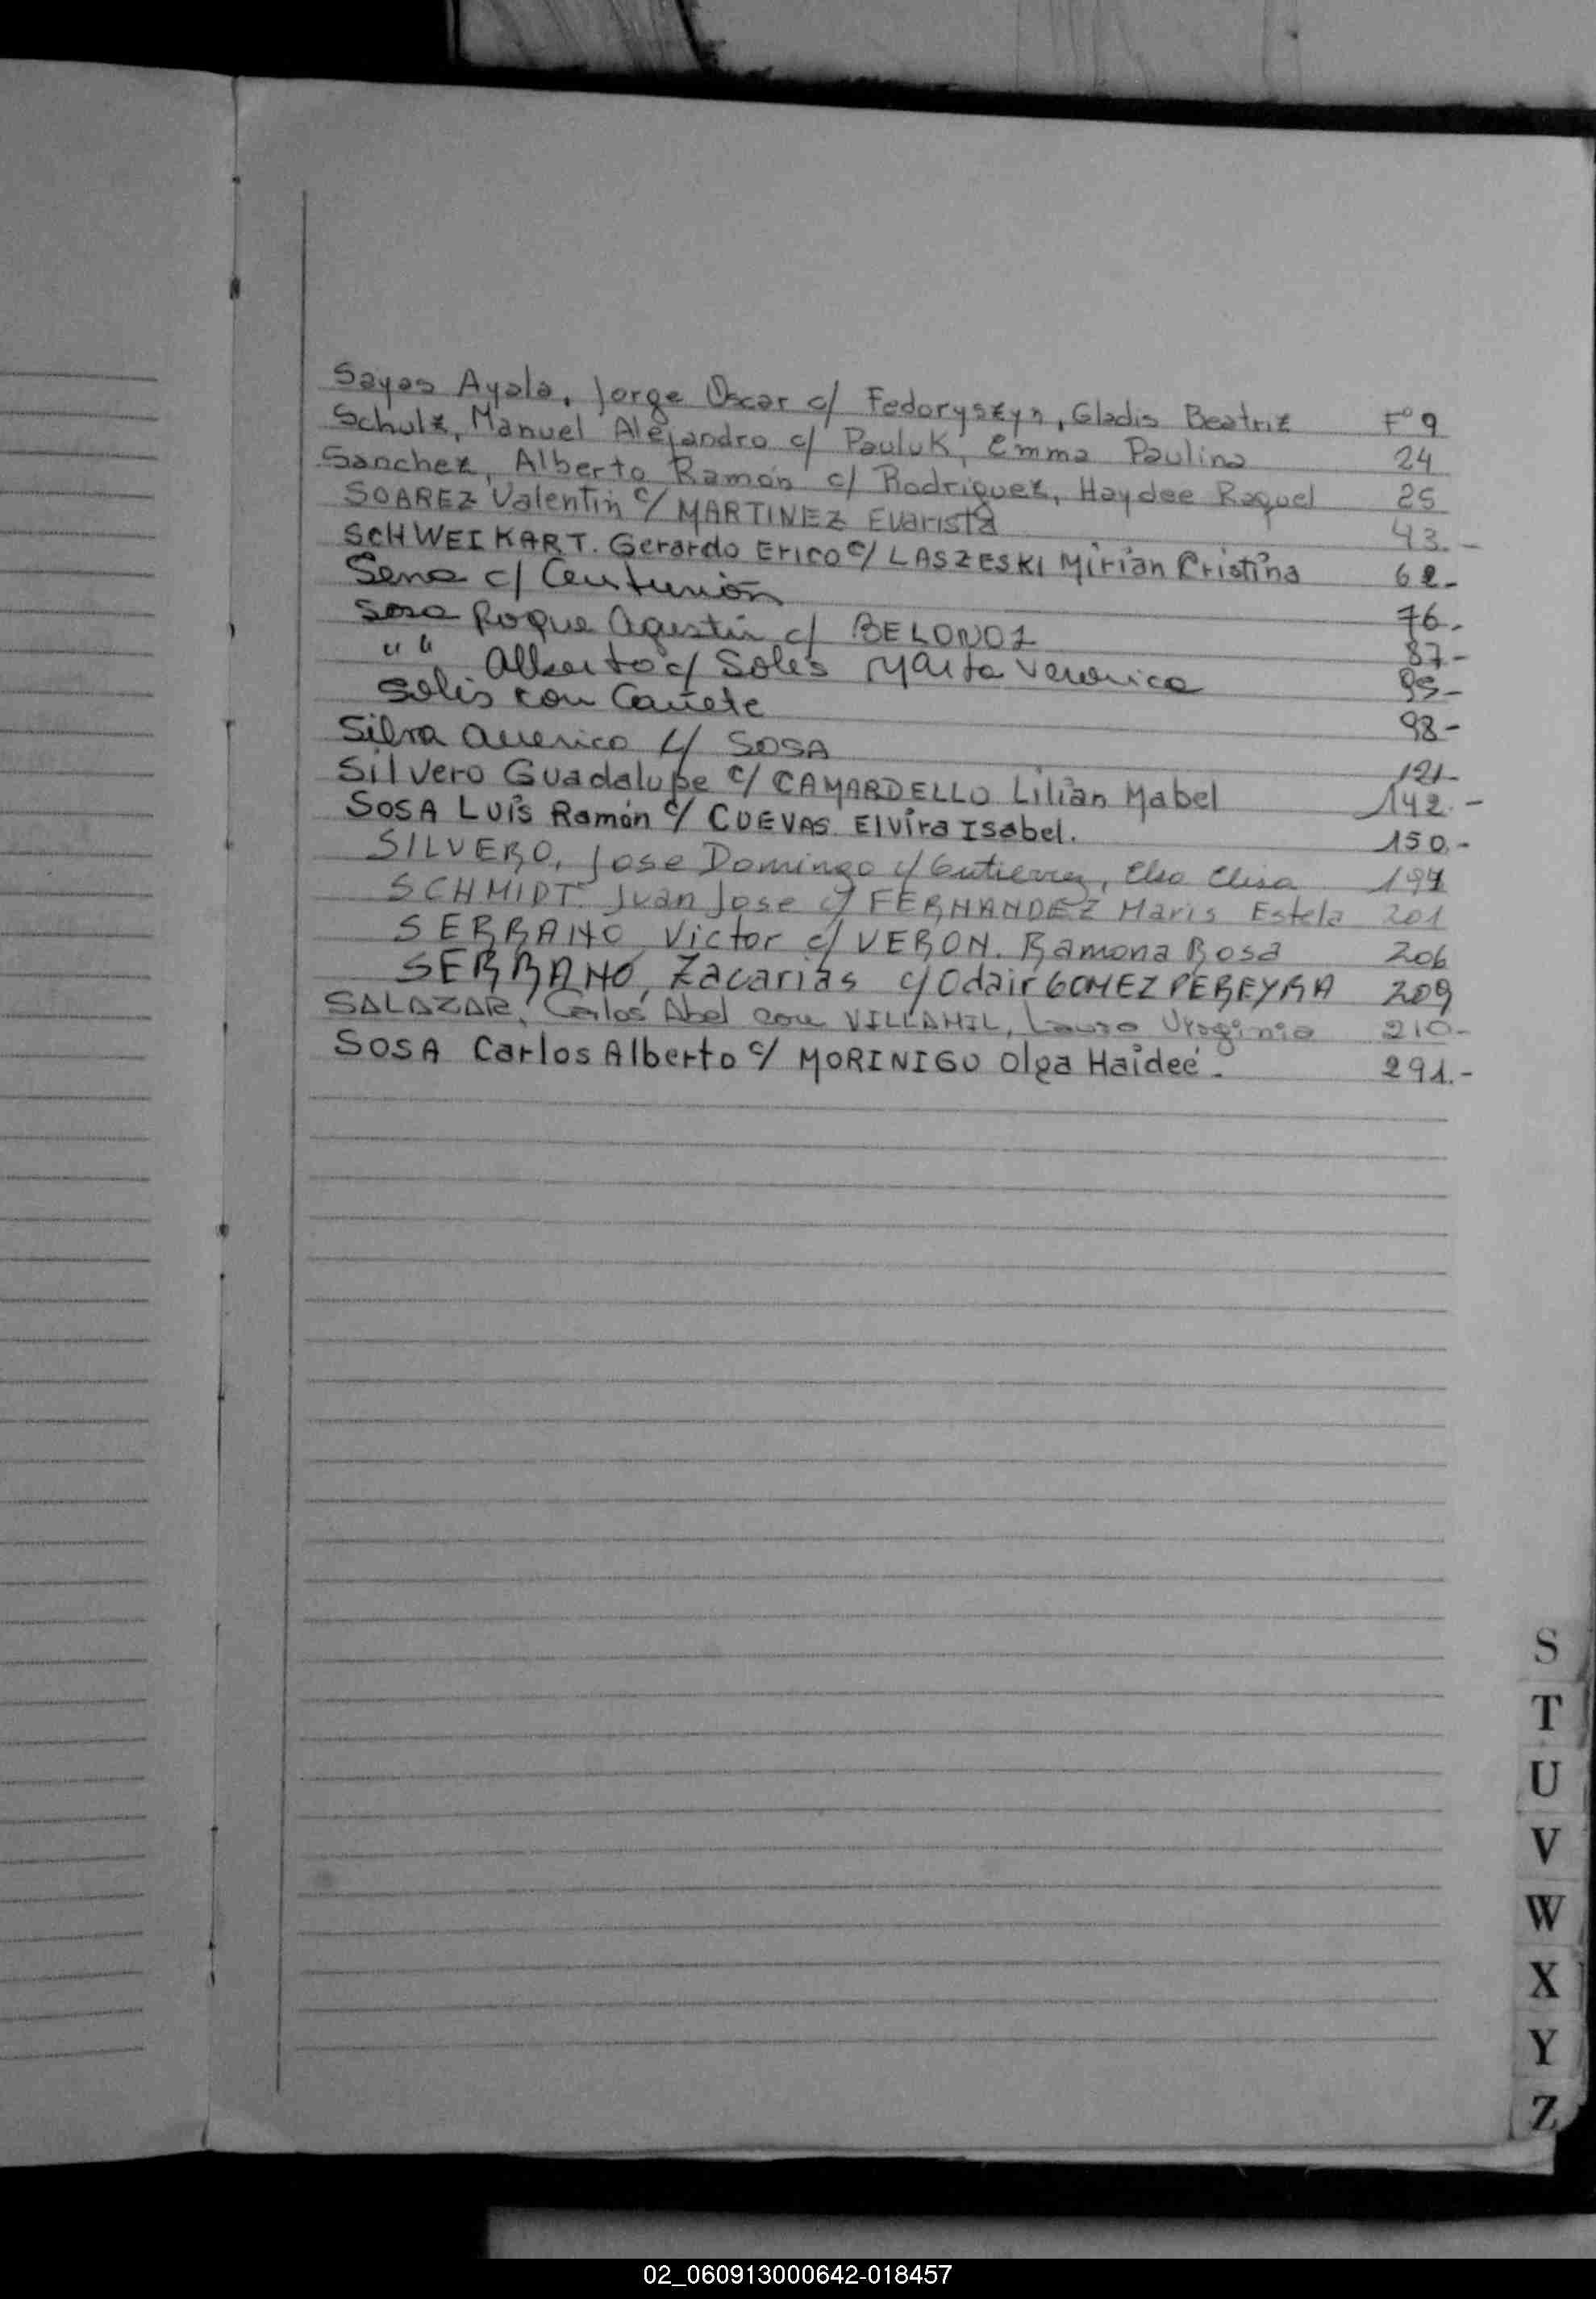 Sayas Ayala, Jorge Oscar c/ Fedoryszyn, Gladis Beatriz F° 9
Schulz, Manuel Alejandro c/ Pauluk, Emma Paulina 24
Sanchez, Alberto Ramón c/ Rodriguez, Haydee Raquel 25
SOAREZ Valentin c/ MARTINEZ Evarista 43.-
SCHWEIKART. Gerardo Erico c/ LASZESKI Mirian Cristina 62-
Sena c/ Centurión 76.
Sosa Roque Agustin c/ BELONOZ 87-
" " Alberto c/ Soles Marta Veronica 95-
Solis con Cañete 98-
Silva Americo c/ SOSA 121-
Silvero Guadalupe c/ CAMARDELLO Lilian Mabel 142.-
SOSA Luis Ramón c/ CUEVAS Elvira Isabel. 150.-
SILVERO, Jose Domingo c/ Gutierrez, Elsa Elisa
SCHMIDT. Juan Jose c/ FERNANDEZ Maris Estela 201
SERRANO, Victor c/ VERON. Ramona Rosa 206
SERRANO, Zacarias c/ Odair GOMEZ PEREYRA 209
SALAZAR, Carlos Abel con VILLAMIL, Laura Virginia 210-
SOSA Carlos Alberto c/ MORINIGO Olga Haideé.- 291.-
S
T
U
V
W
X
Y
Z
02_060913000642-018457